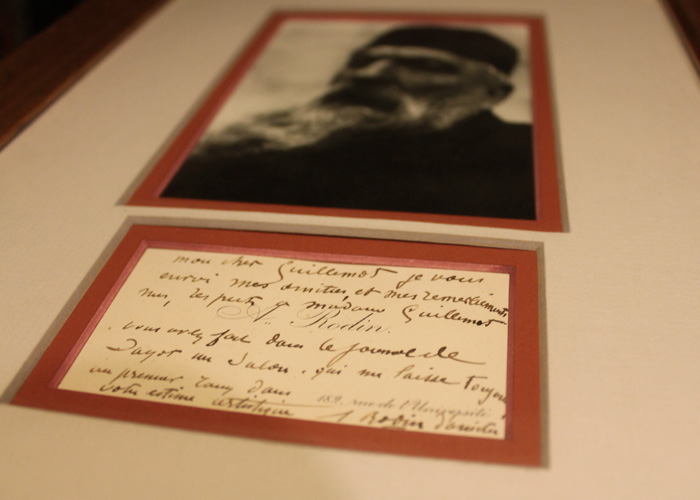 mon cher Guillemot je vous
envoi mes amities et mes remerciements
mes respects a madame Guillemot
A. Rodin.
vous avez fait dans le journal de
un Salon. qui me laisse toujours
un premier rang dans
182, rue de l'Université
votre estime artistique A Rodin